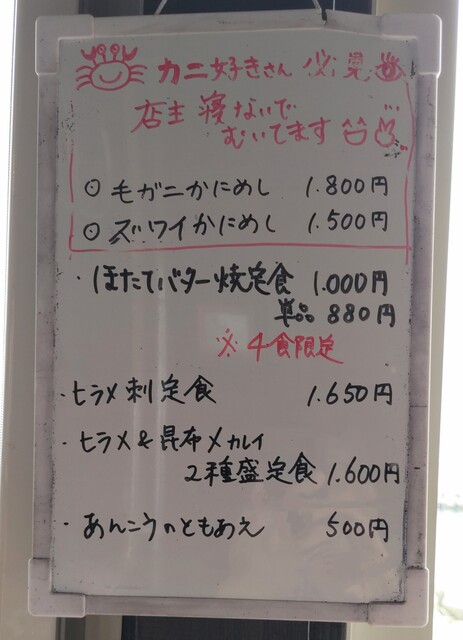 カニ好きさん 必見
店主 寝ないで
むいてます
○ 毛ガニかにめし 1.800円
○ ズワイかにめし 1.500円
・ほたてバター焼定食 1.000円
単品 880円
※4食限定
・ヒラメ刺定食 1.650円
・ヒラメ&昆布〆カレイ
2種盛定食 1.600円
・あんこうのともあえ 500円